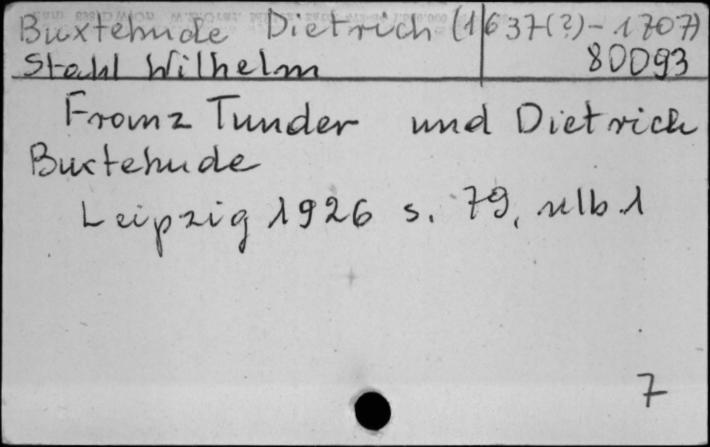 Buxtehude Dietrich (1637(?)-1707)
Stahl Wilhelm 80093
Franz Tunder und Dietrich
Buxtehude
Leipzig 1926 s. 79, nlb 1
7